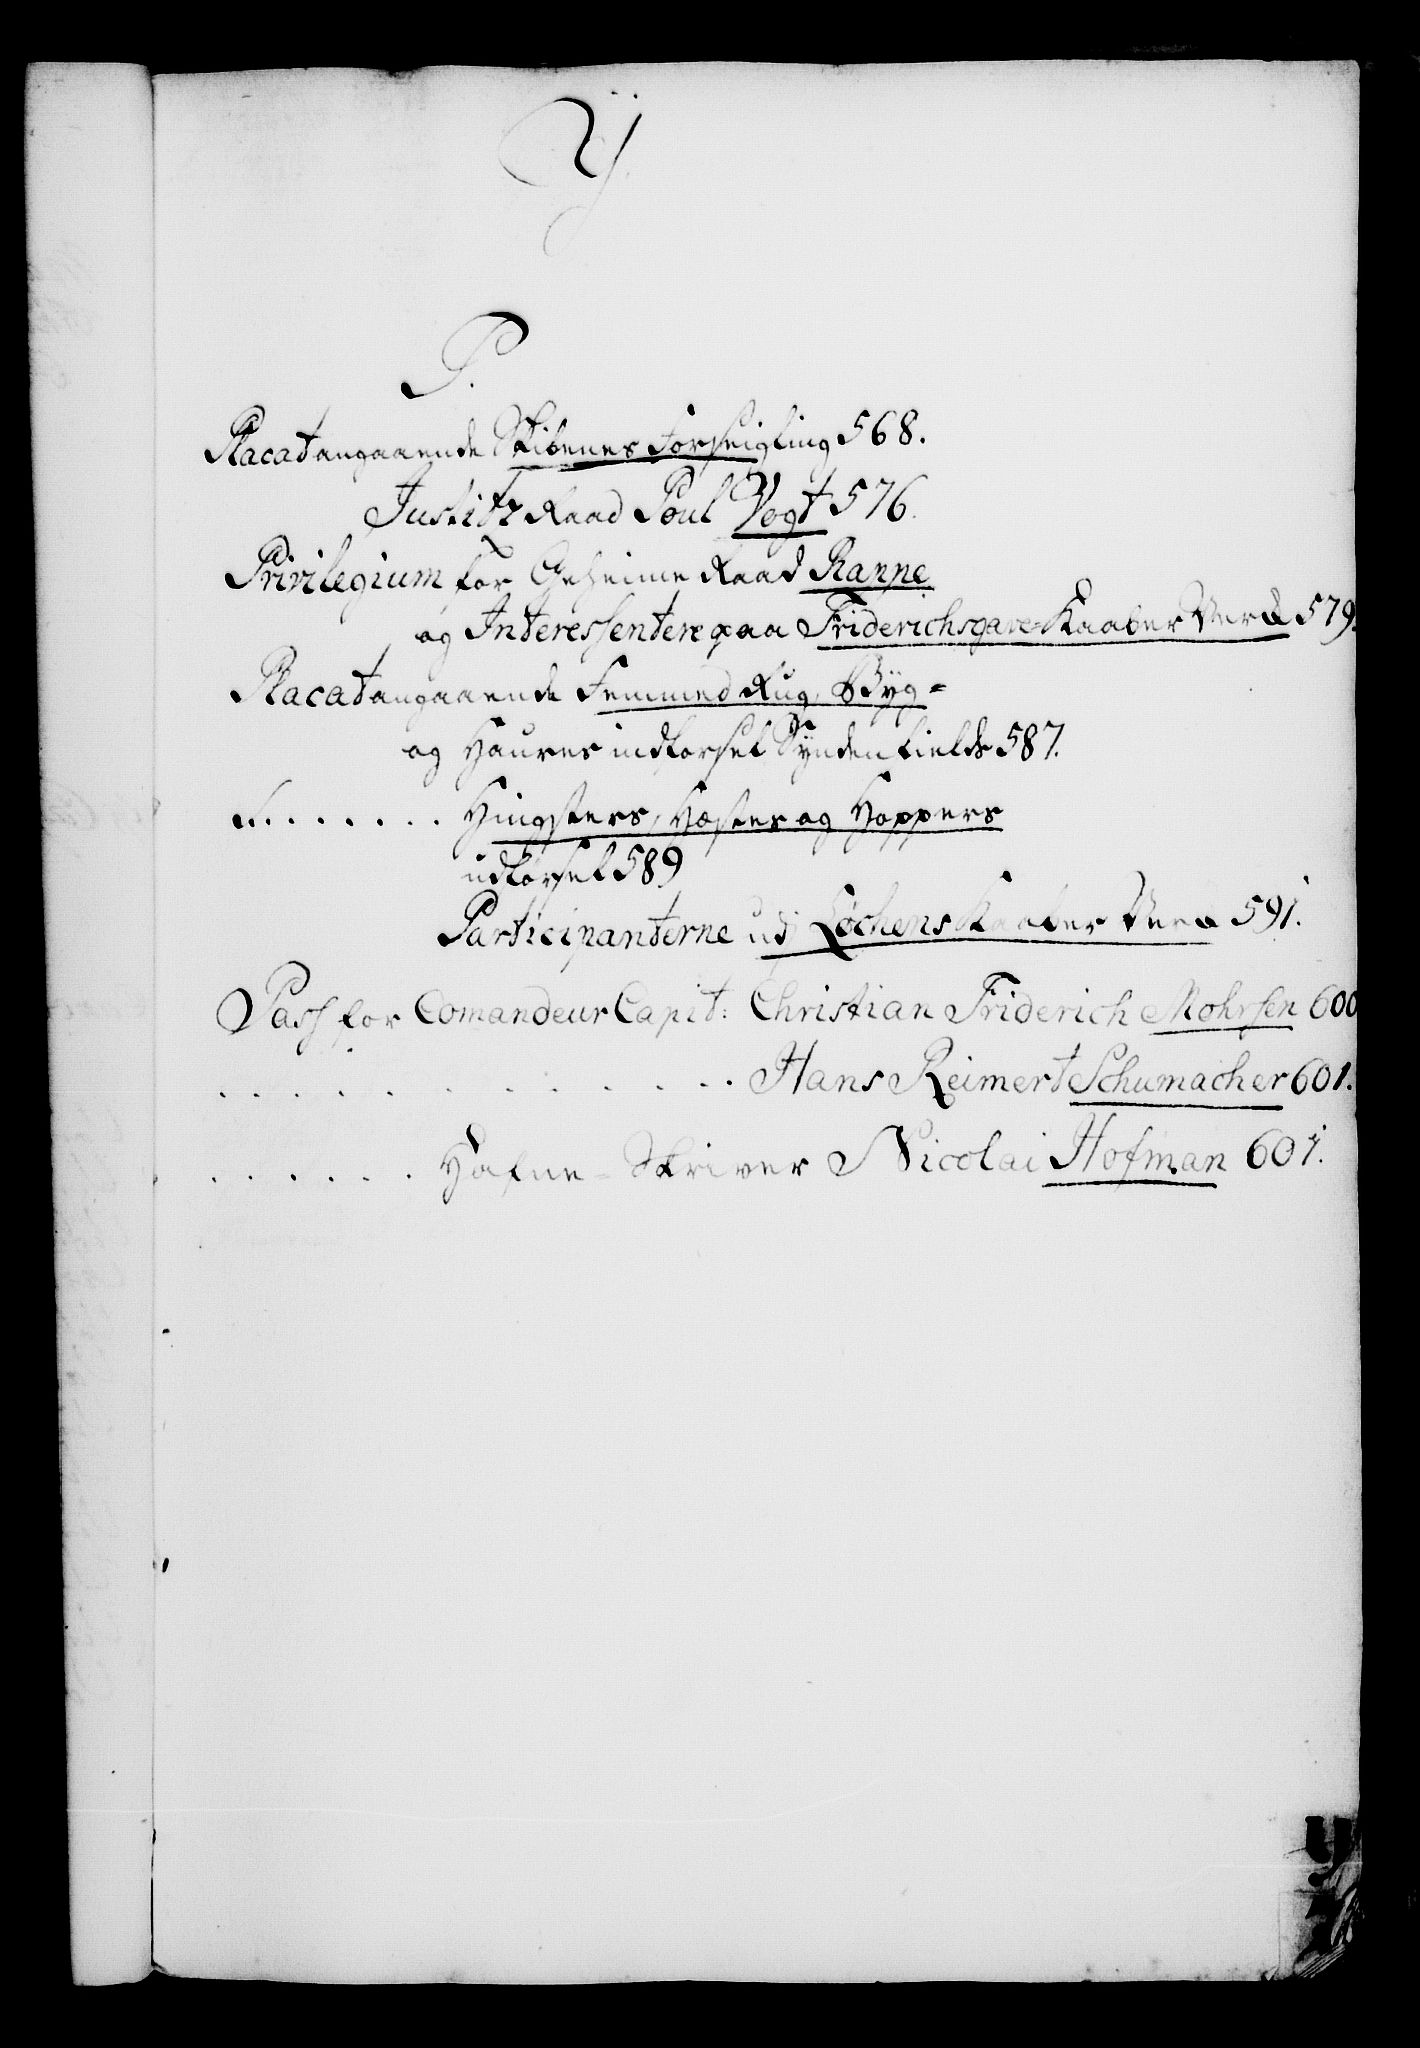 Y.
P.
Placat angaaende Skibenes Forseigling 568.
Justitz Raad Poul Vogt 576.
Privilegium for Geheime Raad Rappe
og Interessentere paa Friderichsgave Kaaber Værck 579.
Placat angaaende Fremmed Rug, Byg=
og Haures indførsel Syndenfields 587.
d. . . . . . . . Hingsters, Hæstes og Hoppers
udførsel 589
Participanterne udj Løchens Kaaber Værck 591.
Pass for Comandeur Capit: Christian Friderich Mohrsen 600
. . . . . . . . . . Hans Reimert Schumacher 601.
. . . . . . Hafne=Skriver Nicolai Hofman 601.
Y